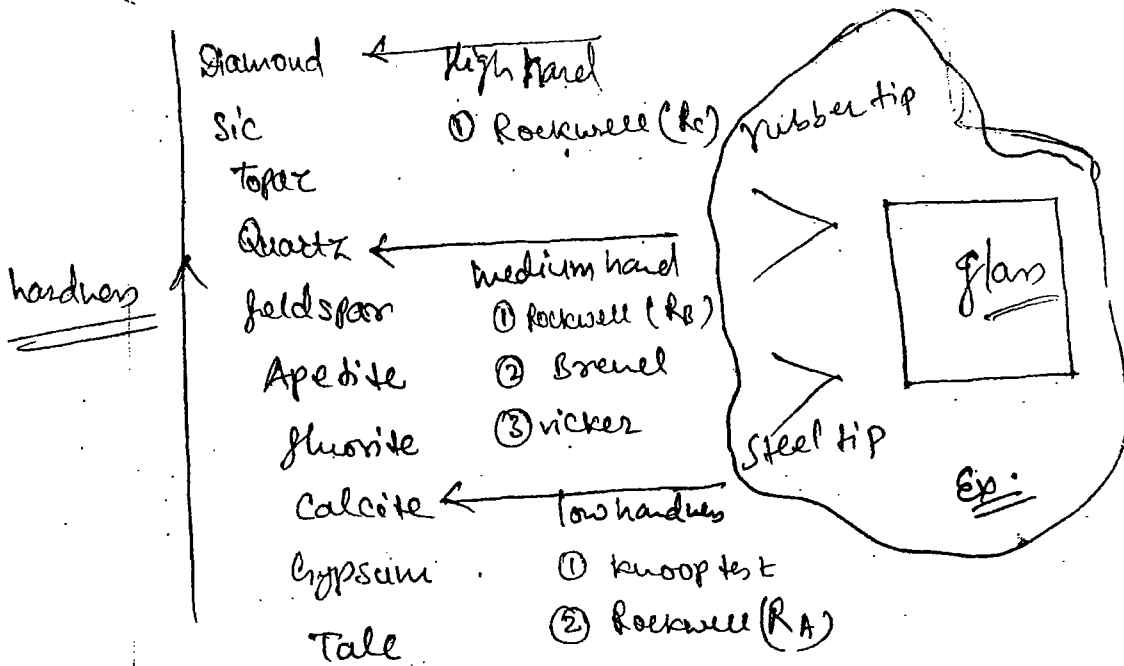 Diamond ← High hard
Sic ① Rockwell (Rc)
Topaz
Quartz ← medium hard
feldspar ① Rockwell (RB)
Apetite ② Brenel
fluorite ③ vicker
Calcite ← low hardness
Gypsum ① Knoop test
Talc ② Rockwell (RA)
hardness
rubber tip
glass
Steel tip
Ex.